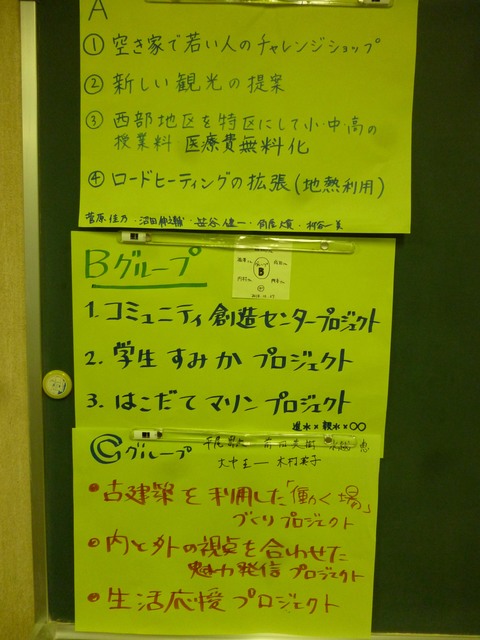 A
① 空き家で若い人のチャレンジショップ
② 新しい観光の提案
③ 西部地区を特区にして小・中・高の
授業料 医療費無料化
④ ロードヒーティングの拡張(地熱利用)
菅原佳乃・沼田
Bグループ
グループ
B
1. コミュニティ創造センタープロジェクト
2. 学生すみかプロジェクト
3. はこだてマリンプロジェクト
進水×親水×○○
Cグループ
木村
• 古建築を利用した「働く場」
づくりプロジェクト
• 内と外の視点を合わせた
魅力発信プロジェクト
• 生活応援プロジェクト